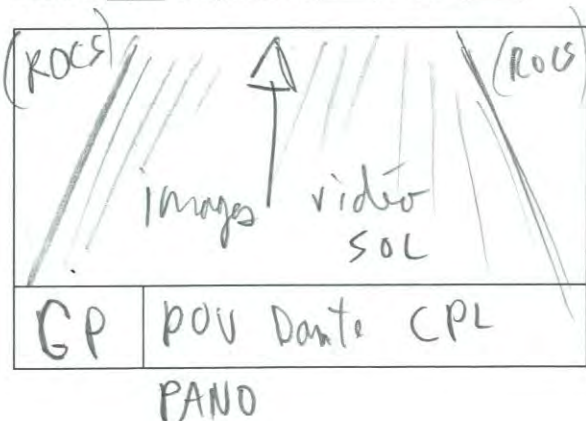 (ROCS) (ROCS)
images vidéo
SOL
GP POV Dante CPL
PANO